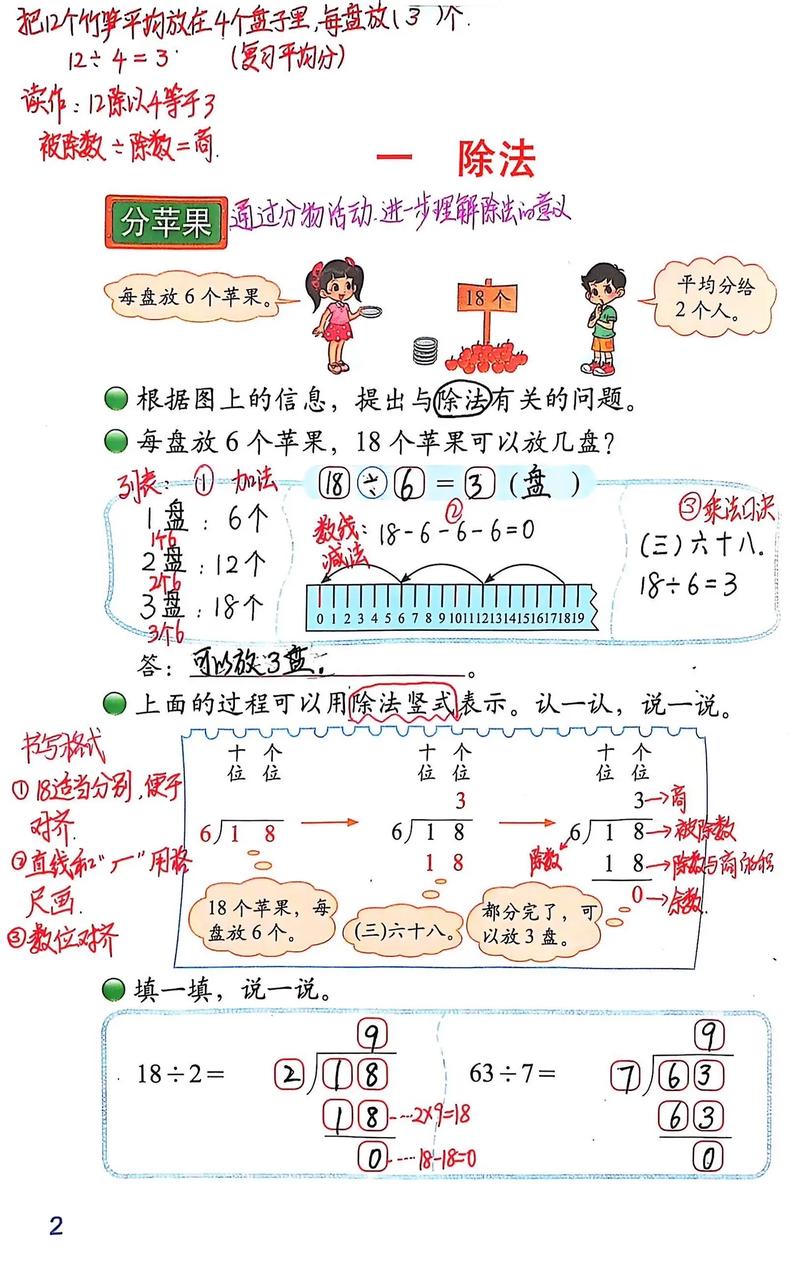 把12个竹笋平均放在4个盘子里,每盘放(3)个.
12÷4=3 (复习平均分)
读作:12除以4等于3
被除数÷除数=商.
一 除法
分苹果 通过分物活动.进一步理解除法的意义
每盘放6个苹果。
18个
平均分给
2个人。
根据图上的信息,提出与除法有关的问题。
每盘放6个苹果,18个苹果可以放几盘?
列表: ① 加法
18÷6=3(盘)
1盘:6个
1个6
2盘:12个
2个6
3盘:18个
3个6
②
数线: 18-6-6-6=0
减法
0 1 2 3 4 5 6 7 8 9 10 11 12 13 14 15 16 17 18 19
③乘法口诀
(三)六十八.
18÷6=3
答:可以放3盘.。
上面的过程可以用除法竖式表示。认一认,说一说。
书写格式
①18适当分别,便于
对齐.
②直线和“厂”用格
尺画.
③数位对齐
十 个
位 位
6 1 8
18个苹果,每
盘放6个。
十 个
位 位
3
6 1 8
1 8
(三)六十八。
十 个
位 位
3→商
6 1 8→被除数
除数
1 8→除数与商的积
0→余数.
都分完了,可
以放3盘。
填一填,说一说。
9
18÷2= 2 1 8
1 8 ---2×9=18
0 ---18-18=0
9
63÷7= 7 6 3
6 3
0
2